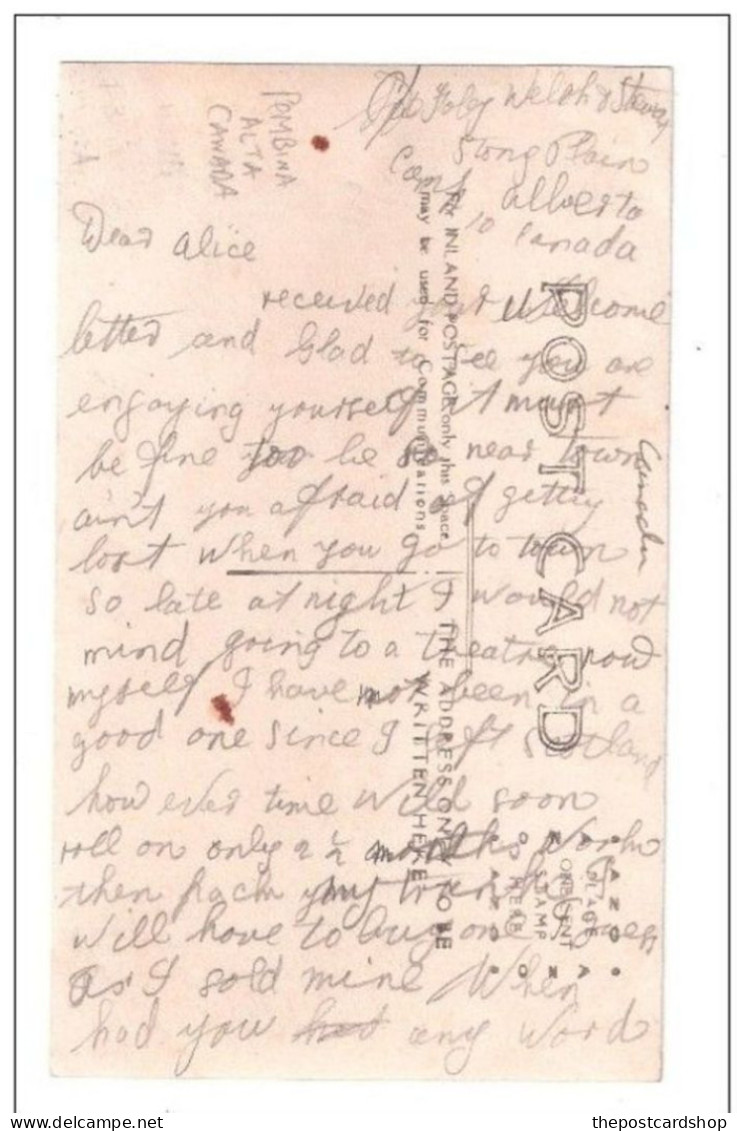 Foley Welch & Stewart
Stony Plain
Camp 10 Alberta
Canada
PEMBINA
ALTA
CANADA
Dear Alice
received your Welcome
letter and Glad to see you are
enjoying yourself it must
be fine too be so near town
ain't you afraid of getting
lost when you go to town
so late at night I would not
mind going to a theatre now
myself I have not been in a
good one since I left Scotland
how ever time will soon
roll on only 2 ½ months work
then pack my trunk
will have to buy one
as I sold mine When
had you had any word
POST CARD
For INLAND POSTAGE only this space
may be used for Communications
THE ADDRESS ONLY TO BE
WRITTEN HERE
PLACE
ONE CENT
STAMP
HERE
thepostcardshop